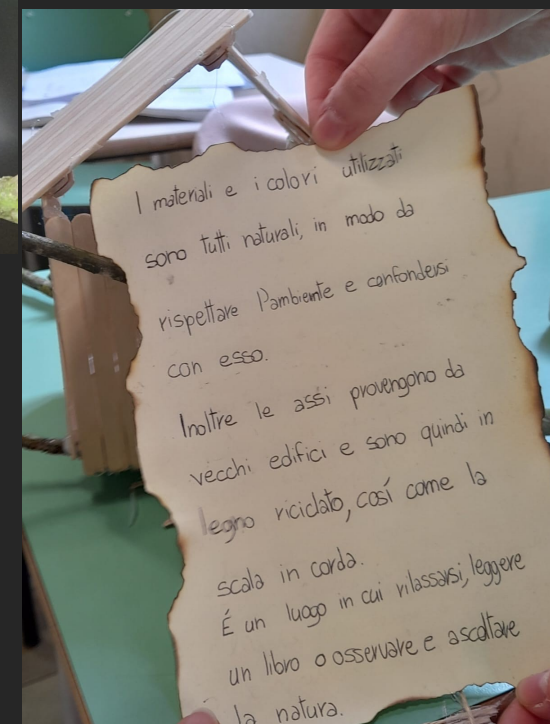 I materiali e i colori utilizzati
sono tutti naturali, in modo da
rispettare l'ambiente e confondersi
con esso.
Inoltre le assi provengono da
vecchi edifici e sono quindi in
legno riciclato, così come la
scala in corda.
É un luogo in cui rilassarsi, leggere
un libro o osservare e ascoltare
la natura.